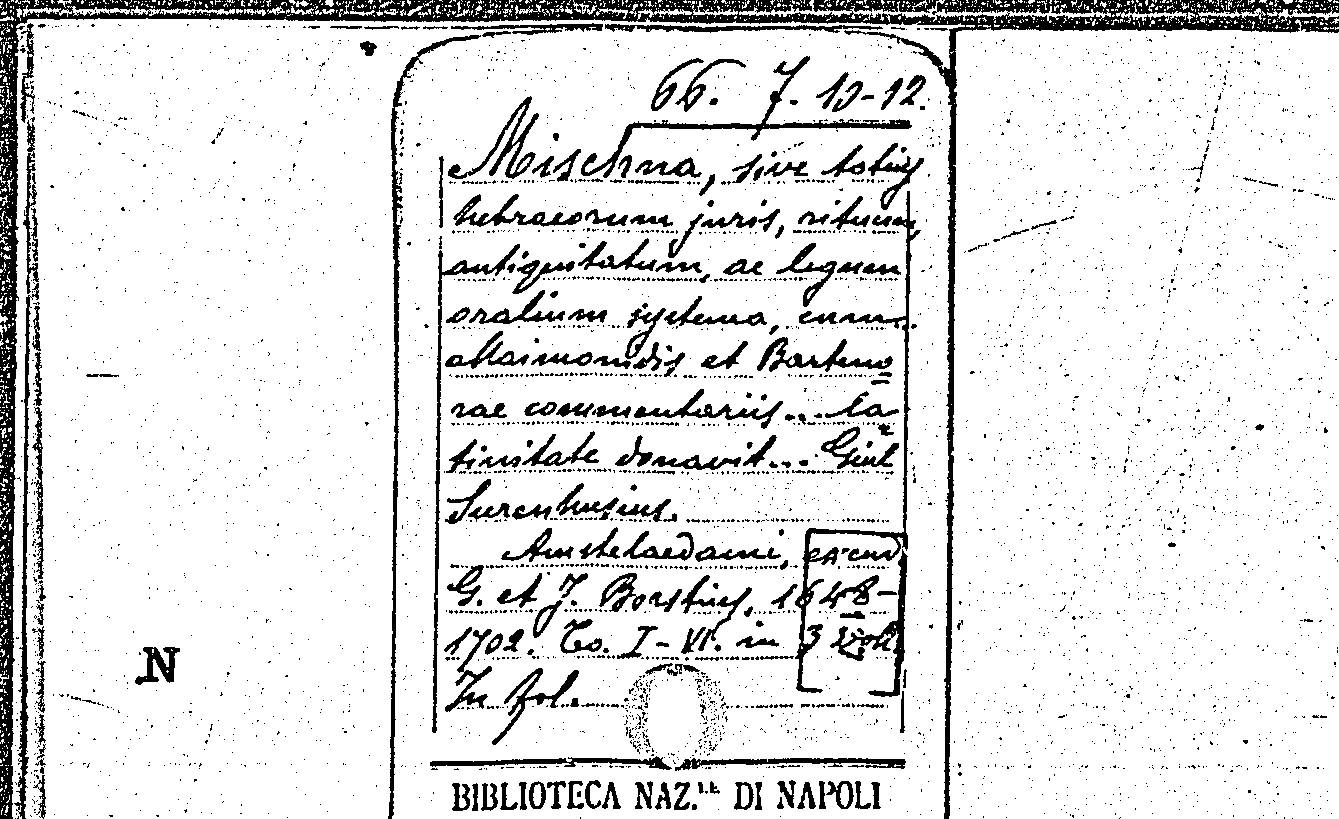 66. 7. 10-12.
Mischna, sive totius
hebraeorum juris, rituum,
antiquitatum, ac legum
oralium systema, cum
Maimonidis et Barteno
rae commentariis... la
tinitate donavit... Giul
Surenhusius.
Amstelaedami, excud.
G. et J. Borstius, 1648-
1702. To. I-VI. in 3 vol.
In fol.
N
BIBLIOTECA NAZ.LE DI NAPOLI